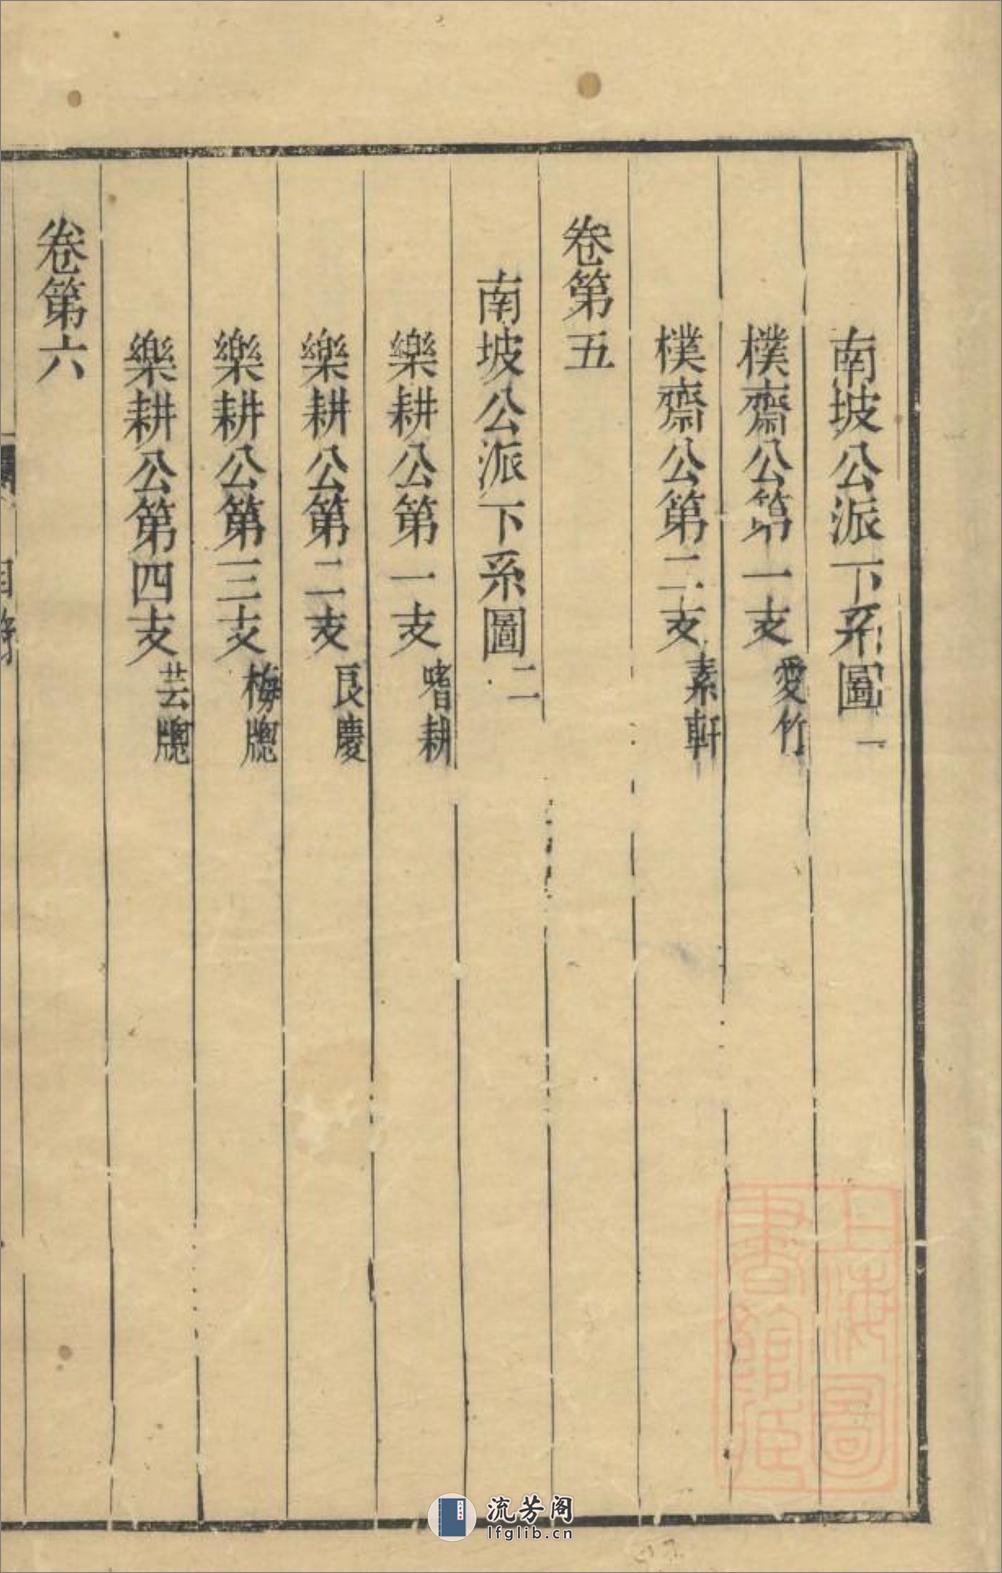 南坡公派下系圖一
樸齋公第一支愛竹
樸齋公第二支素軒
卷第五
南坡公派下系圖二
樂耕公第一支嗜耕
樂耕公第二支良慶
樂耕公第三支梅牕
樂耕公第四支芸牕
卷第六
上海圖書館藏
流芳阁
lfglib.cn